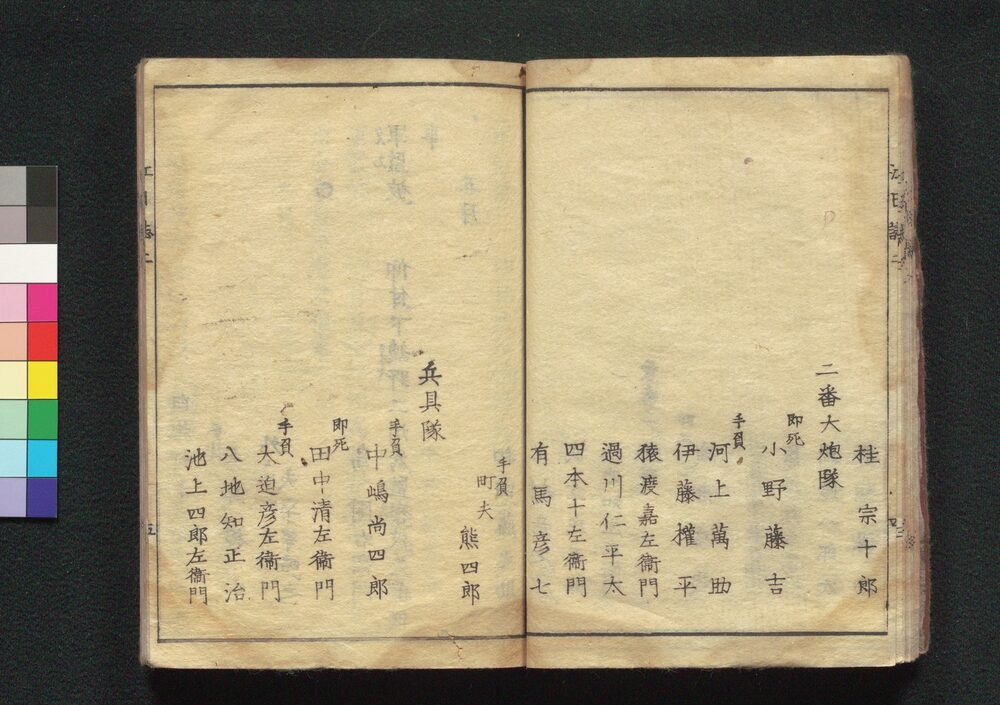 桂宗十郎
二番大炮隊
即死
小野藤吉
手負
河上萬助
伊藤権平
猿渡嘉左衛門
過川仁平太
四本十左衛門
有馬彦七
手負
町夫
熊四郎
兵具隊
手負
中嶋尚四郎
即死
田中清左衛門
手負
大迫彦左衛門
八地知正治
池上四郎左衛門
五